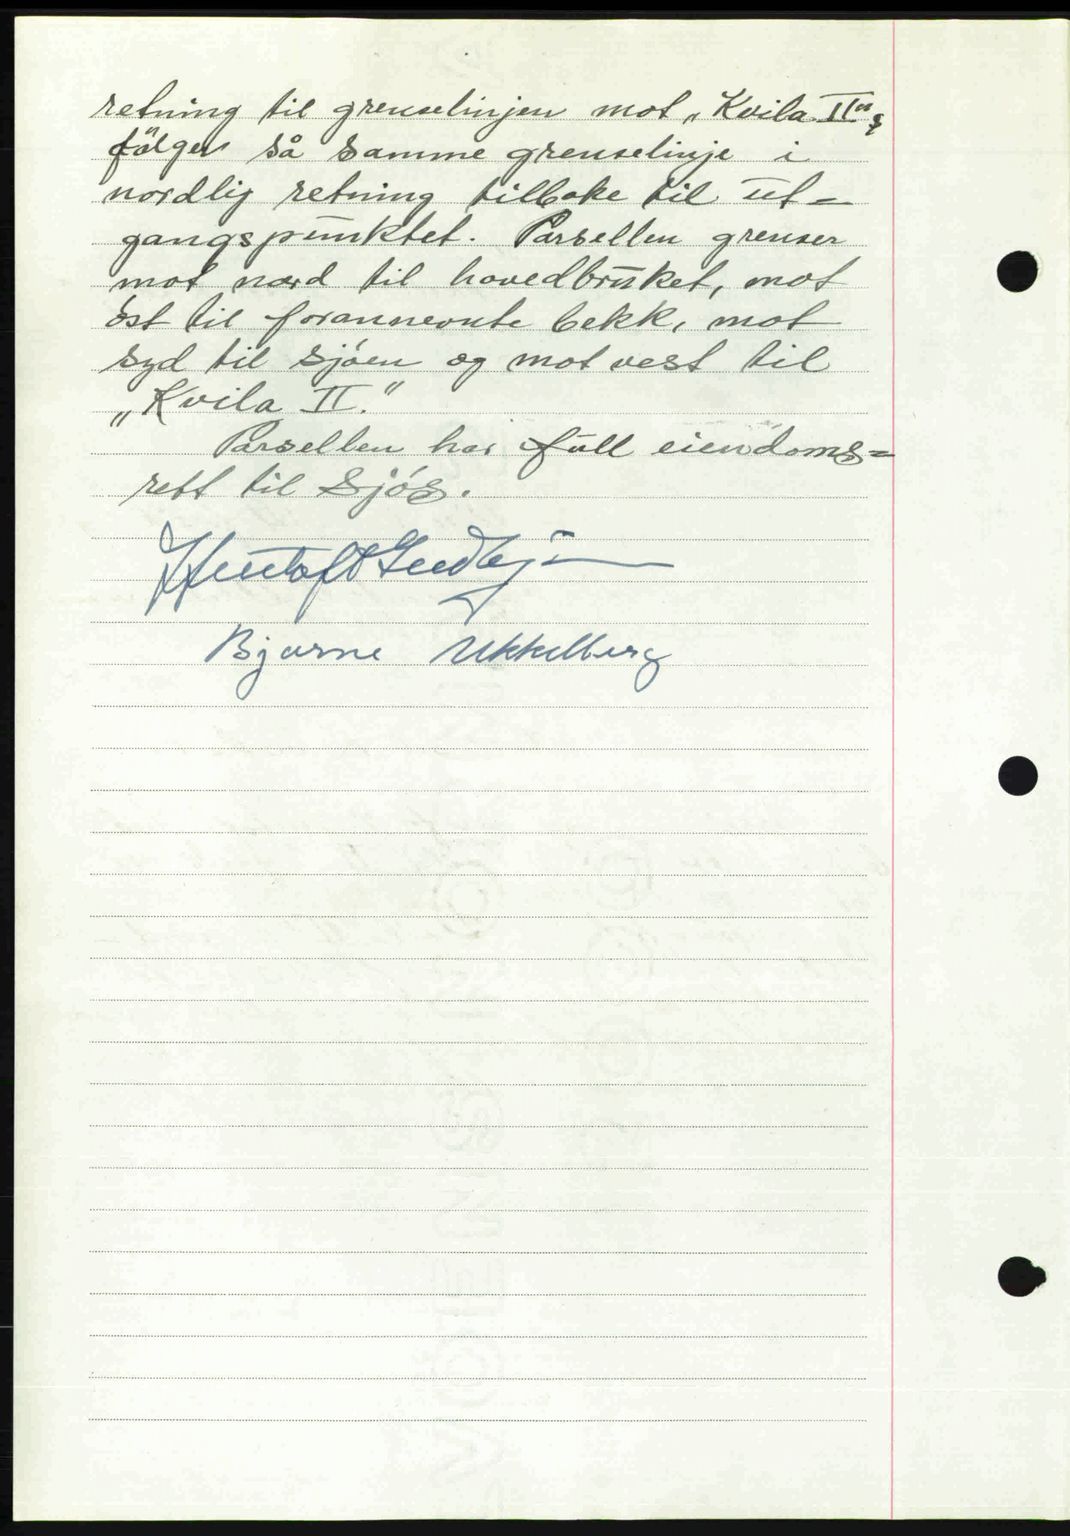 retning til grenselinjen mot „Kvila II“ &
følger så samme grenselinje i
nordlig retning tilbake til ut=
gangspunktet. Parsellen grenser
mot nord til hovedbruket, mot
öst til forannevnte bekk, mot
syd til sjöen og mot vest til
„Kvila II.“
Parsellen har full eiendoms=
rett til sjös.
Bjarne Ukkelberg